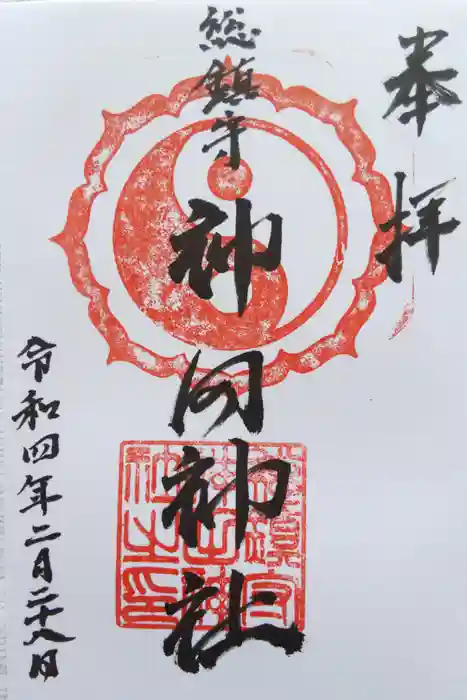 奉拝
総鎮守
神
神社
令和四年二月二十八日